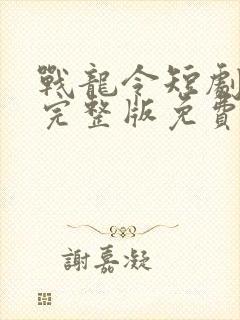 戰龍令短劇
完整版免費
謝嘉凝